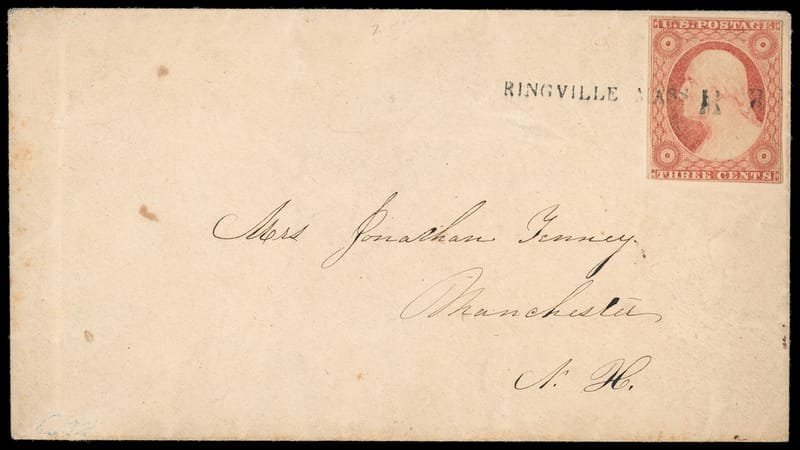 U.S. POSTAGE
RINGVILLE MASS
THREE CENTS
Mrs Jonathan Tenney.
Manchester
N. H.